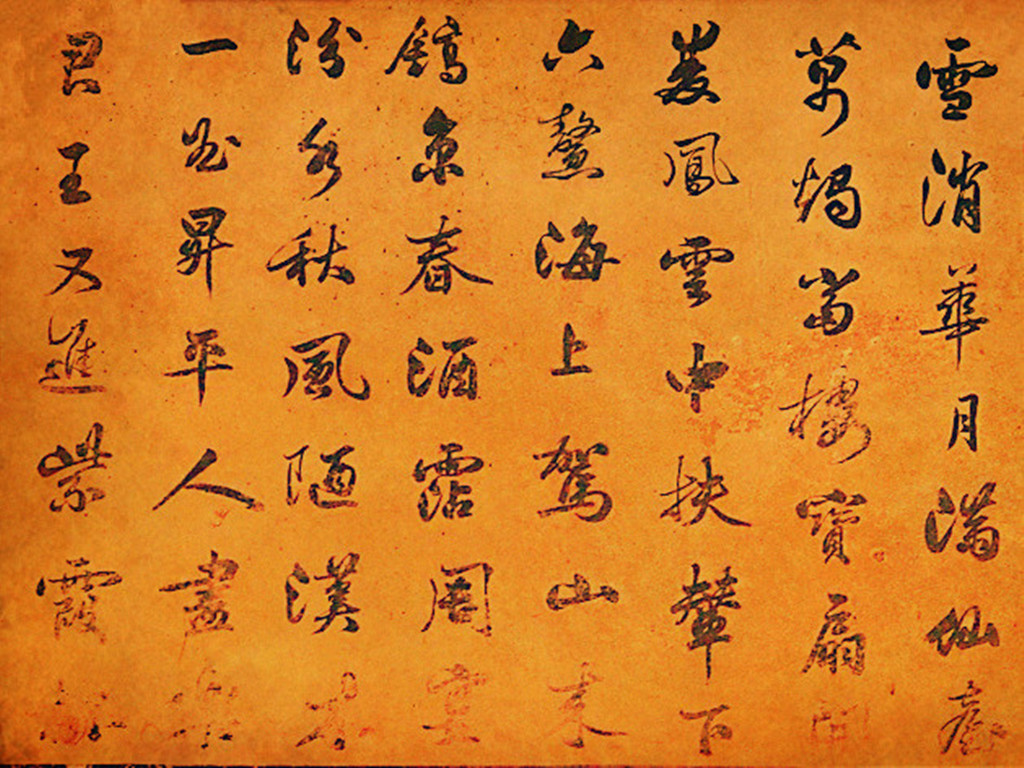 雪消華月滿仙臺
萬燭當樓寶扇開
雙鳳雲中扶輦下
六鰲海上駕山來
鎬京春酒霑周宴
汾水秋風陋漢才
一曲昇平人盡樂
君王又進紫霞杯